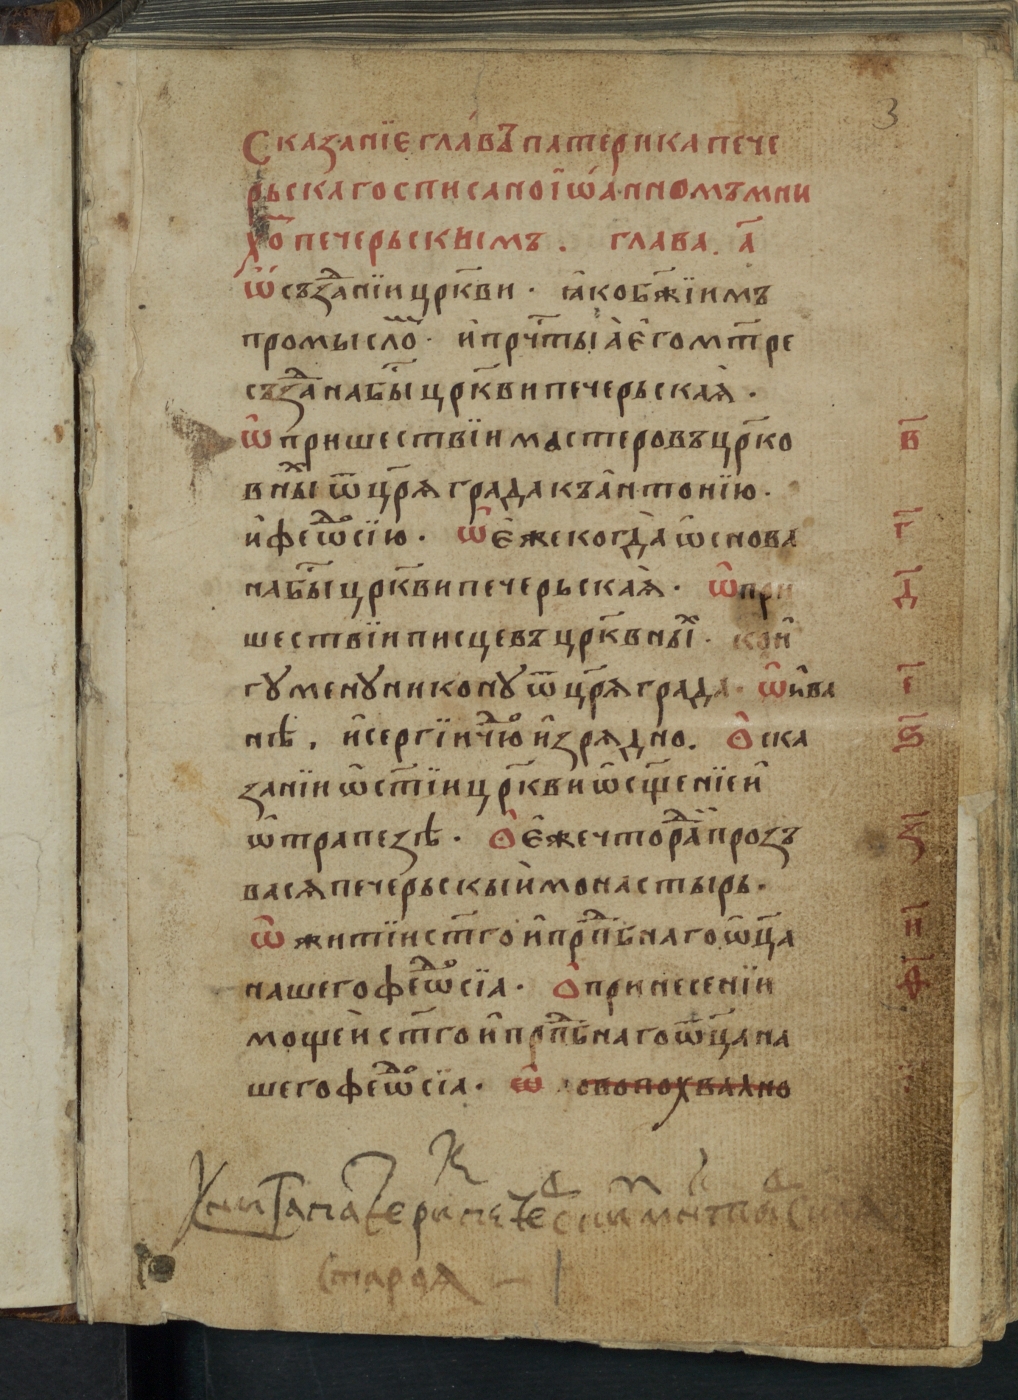 3
Сказанїе гла́въ патерика пече
рьскаго списано їѡа́нномъ мни
хо҃ печерьскымъ. глава. а҃
Ѡ҆ съзⷣанїи цр҃кви · ꙗ҆ко бж҃їимъ
промысло҃м · и҆ прч҃тыѧ̀ є҆го мт҃ре
съзⷣана бы҃ цр҃кви печерьскаѧ̀ ·
Ѡ҆ пришествїи мастеровъ цр҃ко
вны́ⷯ ѿ цр҃ѧ града къ а҆нтонїю · в҃
и҆ феѡⷣ҇сїю · Ѡ҆ є҆же когда̀ ѡ҆снова г҃
на бы҃ цр҃кви печерьскаѧ̀ · Ѡ҆ при д҃
шествїи писцевъ цр҃квны́ⷯ · ко и҆
гꙋменꙋ никонꙋ ѿ цр҃ѧ града · Ѡ҆ и҆ва е҃
нѣ, и҆ сергїи чⷣю и҆зрѧдно. Ѻ҆ ска ѕ҃
занїи ѡ҆ ст҃їи цр҃кви ѡ҆сщ҃енїе и҆
ѡ҆ трапезѣ · Ѻ҆ є҆же что раⷣи прозъ з҃
васѧ печерьскы́и монастырь ·
Ѡ҆ житїи ст҃го и҆ прⷣпⷣбнаго ѡ҆ц҃а и҃
нашего феѡⷣ҇сїа · Ѻ҆ принесенїи ѳ҃
мощеи̇ ст҃го и҆ прⷣпⷣбнаго ѿц҃а на
шего феѡⷣ҇сїа · Ѡ҆ слово похвално
Старая